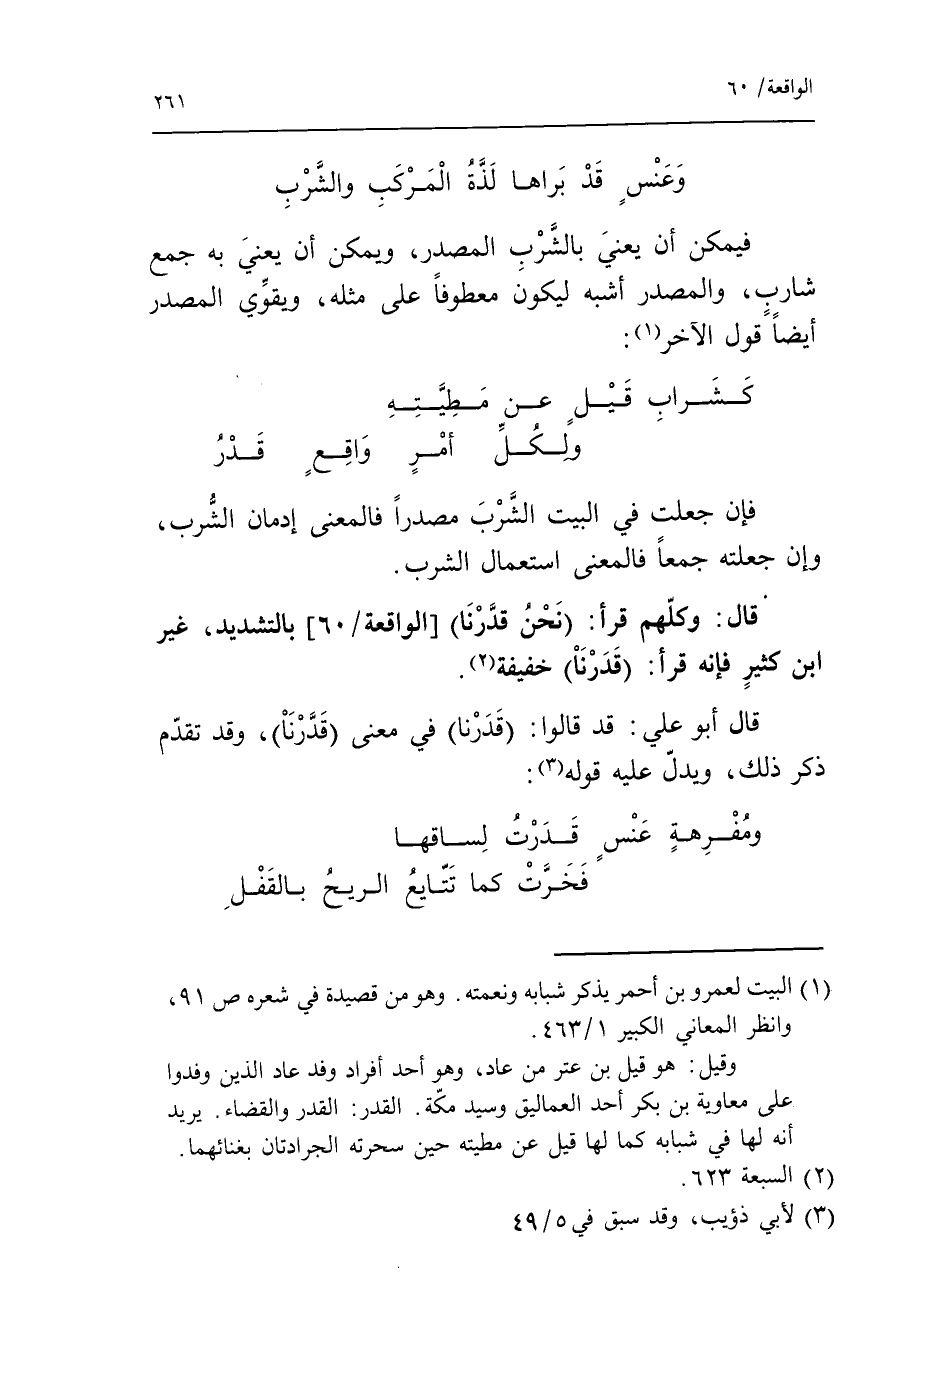 الواقعة/ ٦٠
٢٦١
وَعَنْسٍ قَدْ بَراهـا لَذَّةُ الْمَـرْكَبِ والشَّرْبِ
فيمكن أن يعنيَ بالشَّرْبِ المصدر، ويمكن أن يعنيَ به جمع
شاربٍ، والمصدر أشبه ليكون معطوفاً على مثله، ويقوِّي المصدر
أيضاً قول الآخر(١):
كَـشَـرابِ قَيْـلٍ عـن مَـطِيَّـتِـهِ
ولِـكُـلِّ أمْـرٍ وَاقِـعٍ قَـدْرُ
فإن جعلت في البيت الشَّرْبَ مصدراً فالمعنى إدمان الشُّرب،
وإن جعلته جمعاً فالمعنى استعمال الشرب.
قال: وكلّهم قرأ: (نَحْنُ قدَّرْنَا) [الواقعة/٦٠] بالتشديد، غير
ابن كثيرٍ فإنه قرأ: (قَدَرْنَاْ) خفيفة(٢).
قال أبو علي: قد قالوا: (قَدَرْنا) في معنى (قَدَّرْنَاْ)، وقد تقدّم
ذكر ذلك، ويدلّ عليه قوله(٣):
ومُفْـرِهـةٍ عَنْسٍ قَـدَرْتُ لِسـاقهـا
فَخَـرَّتْ كما تَتَّـايعُ الـريحُ بـالقَفْـلِ
(١) البيت لعمرو بن أحمر يذكر شبابه ونعمته. وهو من قصيدة في شعره ص ٩١،
وانظر المعاني الكبير ٤٦٣/١.
وقيل: هو قيل بن عتر من عاد، وهو أحد أفراد وفد عاد الذين وفدوا
على معاوية بن بكر أحد العماليق وسيد مكّة. القدر: القدر والقضاء. يريد
أنه لها في شبابه كما لها قيل عن مطيته حين سحرته الجرادتان بغنائهما.
(٢) السبعة ٦٢٣.
(٣) لأبي ذؤيب، وقد سبق في ٤٩/٥